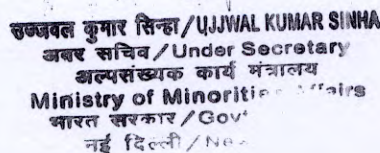 उज्जवल कुमार सिन्हा/UJJWAL KUMAR SINHA
अवर सचिव/Under Secretary
अल्पसंख्यक कार्य मंत्रालय
Ministry of Minorities
भारत सरकार/Gov
नई दिल्ली/